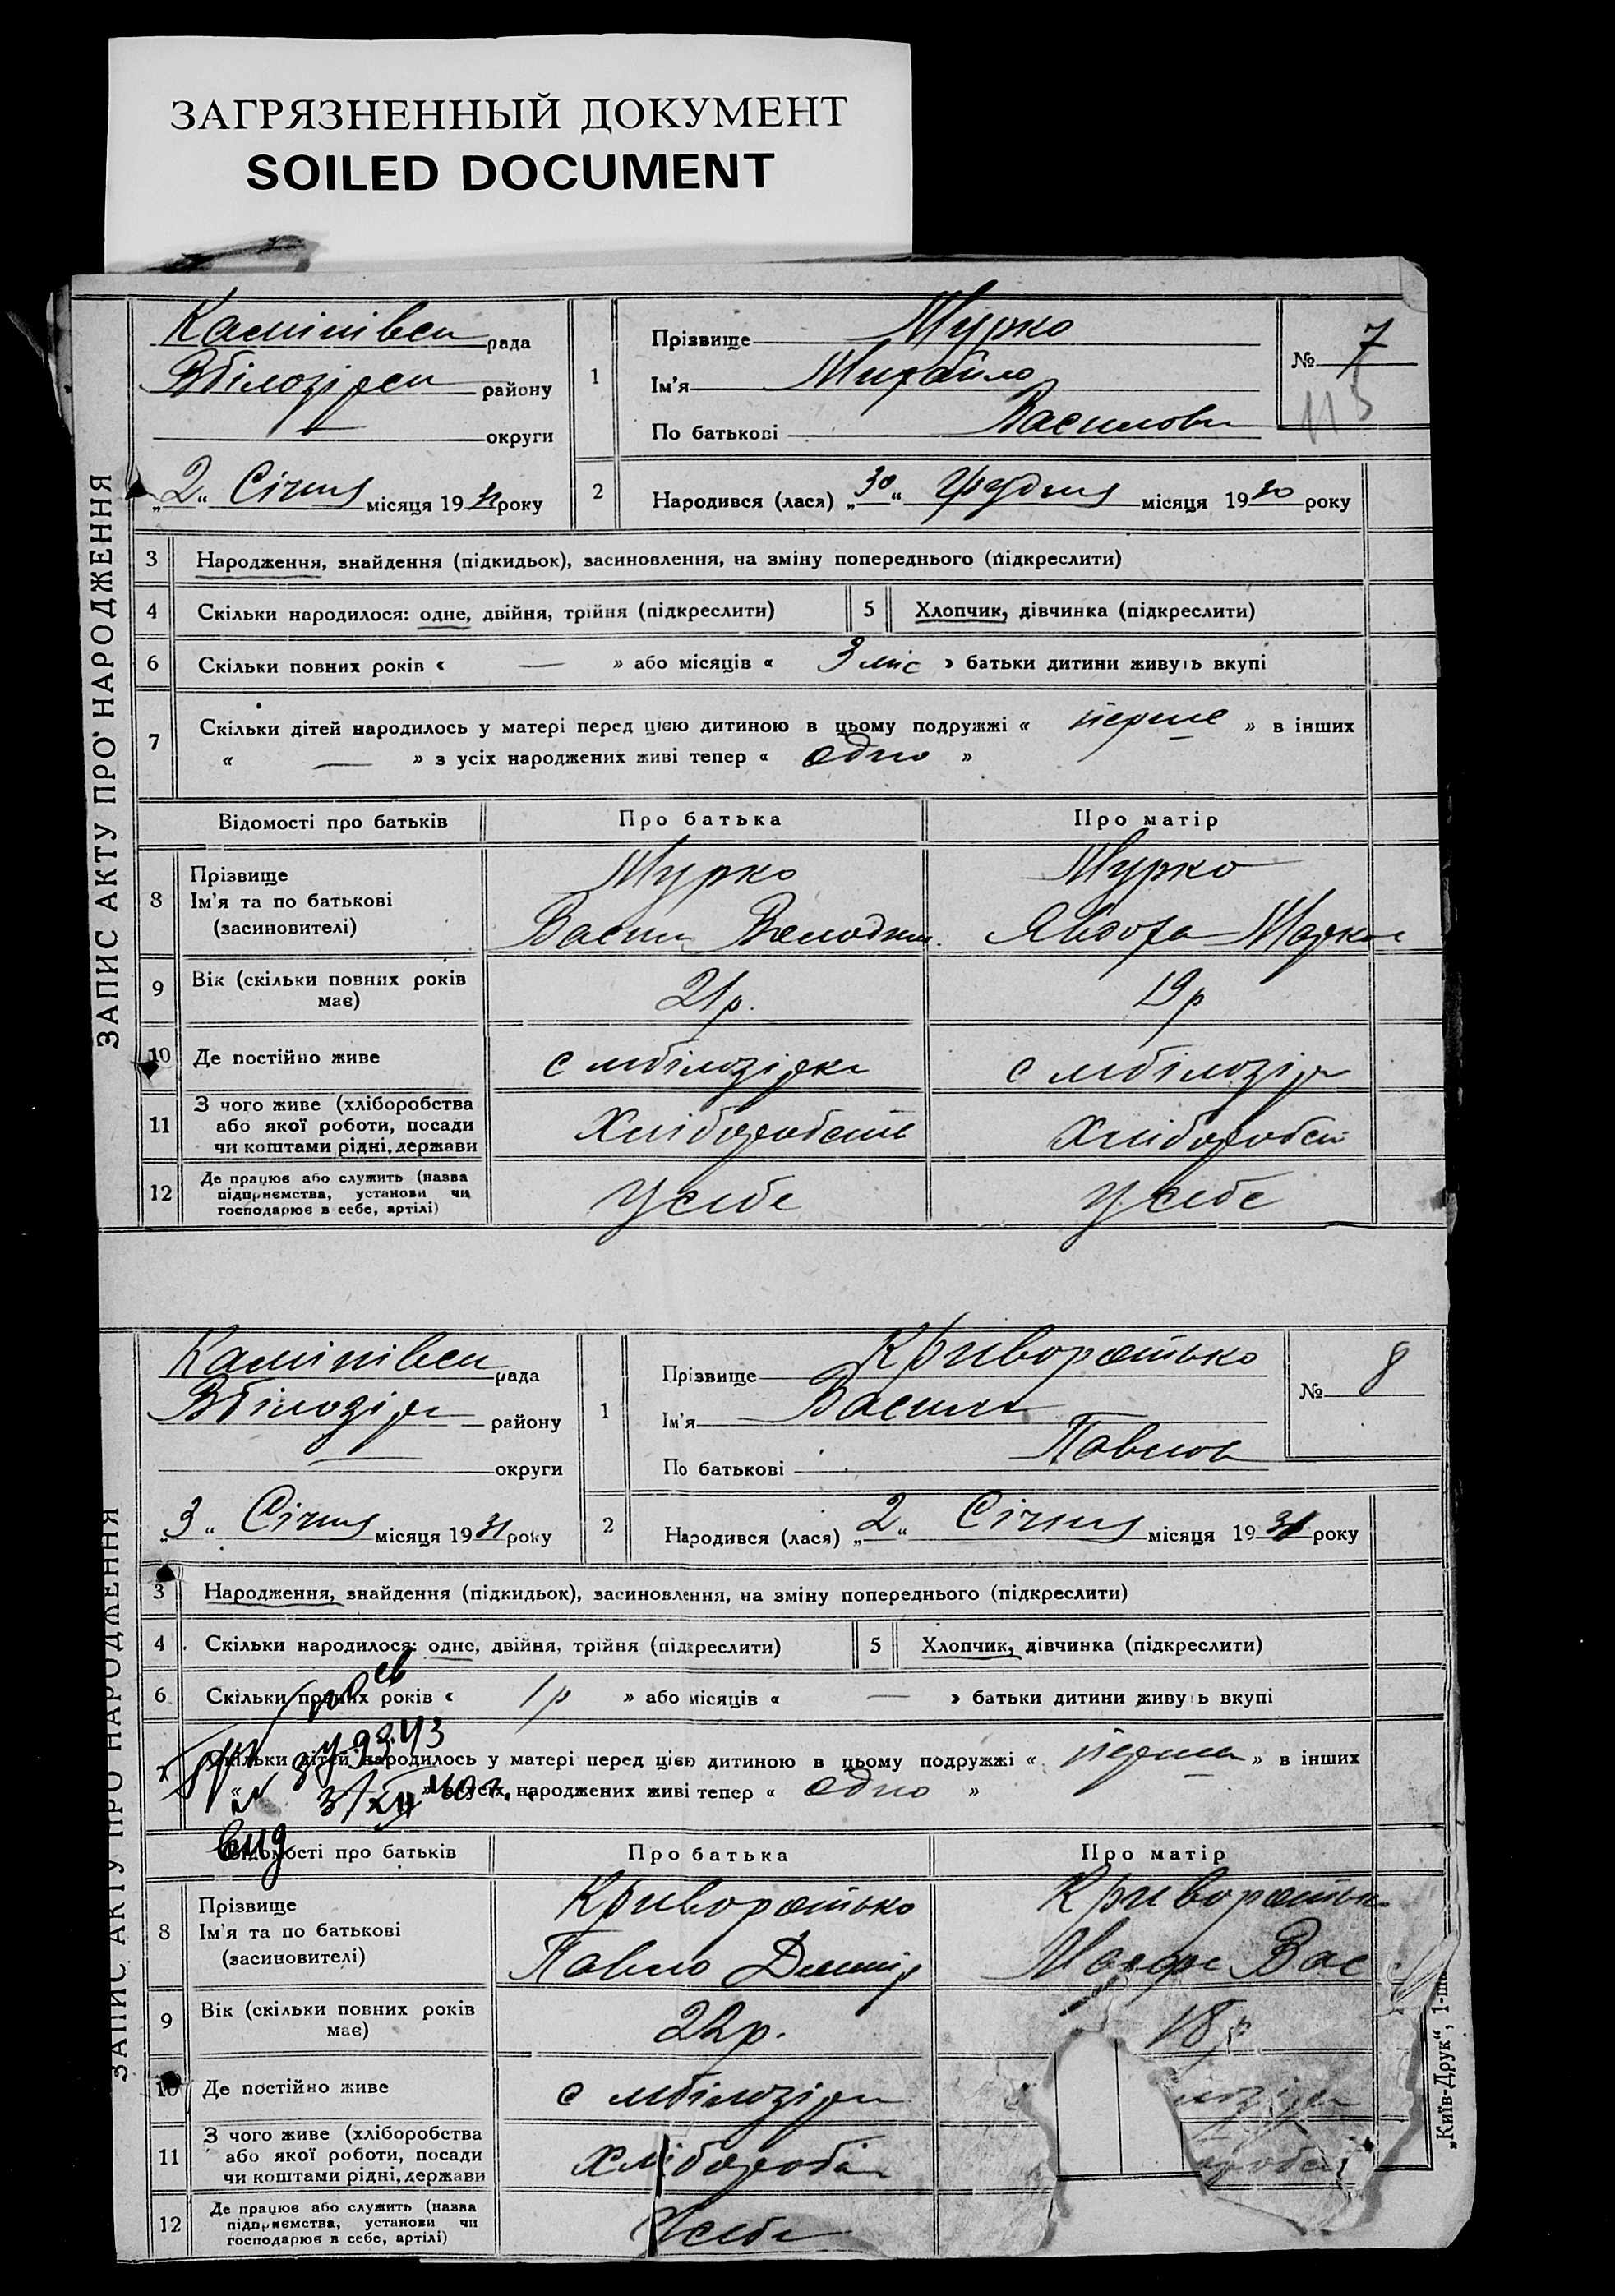 ЗАГРЯЗНЕННЫЙ ДОКУМЕНТ
SOILED DOCUMENT
ЗАПИС АКТУ ПРО НАРОДЖЕННЯ
рада
району
округи
„2“ Січня місяця 1931 року
1
Прізвище Мурко
Ім'я Михайло
По батькові Василови
№ 7
115
2
Народився (лася) „30“ Грудня місяця 1930 року
3 Народження, знайдення (підкидьок), засиновлення, на зміну попереднього (підкреслити)
4 Скільки народилося: одне, двійня, трійня (підкреслити)
5 Хлопчик, дівчинка (підкреслити)
6 Скільки повних років « — » або місяців « 3 міс » батьки дитини живуть вкупі
7 Скільки дітей народилось у матері перед цією дитиною в цьому подружжі « перше » в інших
« — » з усіх народжених живі тепер « одно »
Відомості про батьків
Про батька
Про матір
8 Прізвище
Ім'я та по батькові
(засиновителі)
Мурко
Васил
Мурко
Явдоха
9 Вік (скільки повних років
має)
21р.
19р
10 Де постійно живе
с мбілозірка
с мбілозір
11 З чого живе (хліборобства
або якої роботи, посади
чи коштами рідні, держави
Хліборобств
Хлібороб
12 Де працює або служить (назва
підприємства, установи чи
господарює в себе, артілі)
У себе
У себе
ЗАПИС АКТУ ПРО НАРОДЖЕННЯ
рада
району
округи
„3“ Січня місяця 1931 року
1
Прізвище Криворотько
Ім'я Василь
По батькові Павлов
№ 8
2
Народився (лася) „2“ Січня місяця 1931 року
3 Народження, знайдення (підкидьок), засиновлення, на зміну попереднього (підкреслити)
4 Скільки народилося: одне, двійня, трійня (підкреслити)
5 Хлопчик, дівчинка (підкреслити)
6 Скільки повних років « 1р » або місяців « — » батьки дитини живуть вкупі
7 Скільки дітей народилось у матері перед цією дитиною в цьому подружжі « перша » в інших
» з усіх народжених живі тепер « одно »
Відомості про батьків
Про батька
Про матір
8 Прізвище
Ім'я та по батькові
(засиновителі)
Криворотько
Павло Дмитр
Криворотьк
Вас
9 Вік (скільки повних років
має)
22р.
18р
10 Де постійно живе
с мбілозір
11 З чого живе (хліборобства
або якої роботи, посади
чи коштами рідні, держави
Хлібороб
12 Де працює або служить (назва
підприємства, установи чи
господарює в себе, артілі)
У себе
„Київ-Друк“, 1-ша